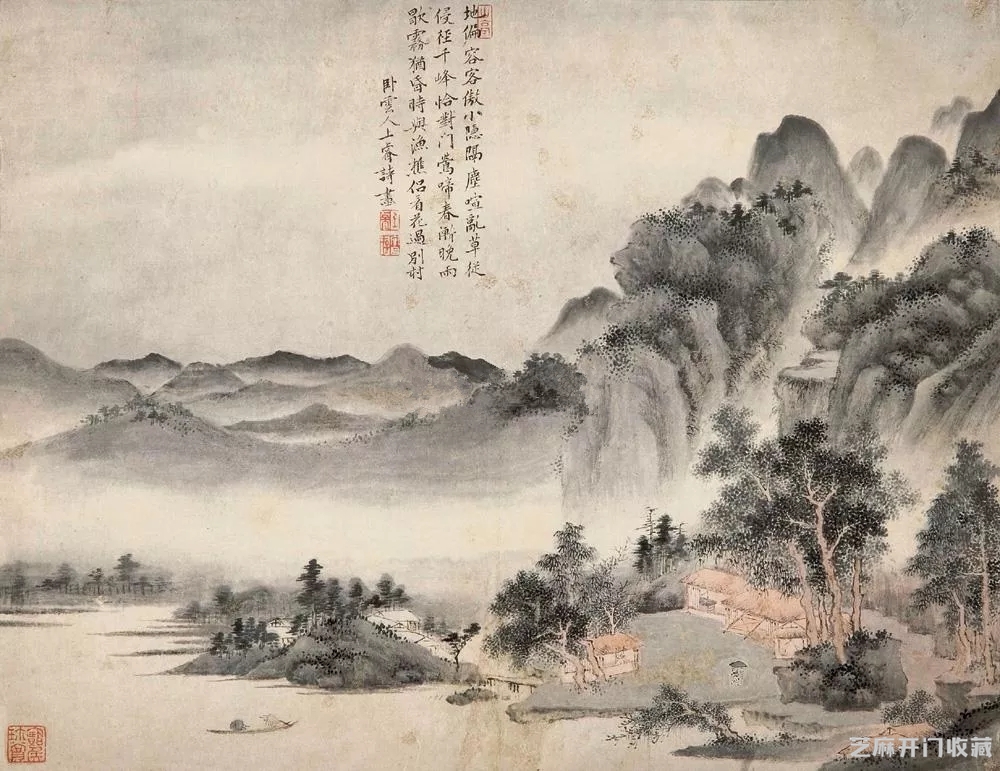 地偏容客傲小隐隔塵喧亂草從
侵徑千峰恰對门鶯啼春漸晚雨
歇霧猶昏時與漁樵侣看花過別村
卧雲人上睿詩畫
芝麻开门收藏